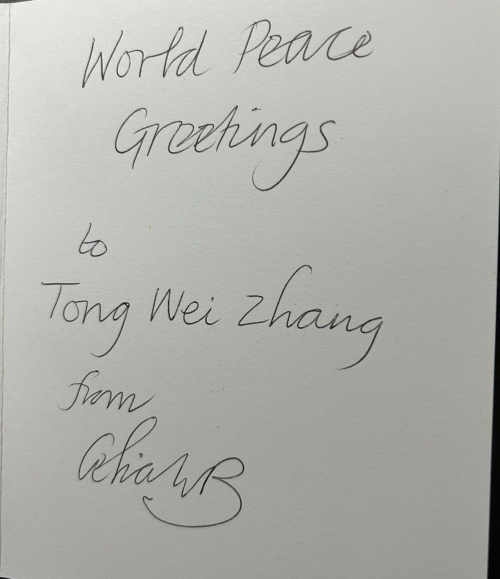 World Peace
Greetings
to
Tong Wei Zhang
from